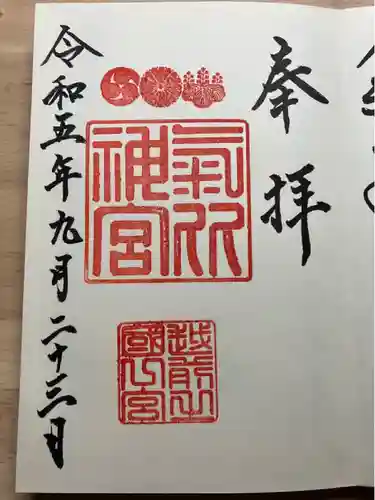 奉拝
氣比
神宮
越前一
國一宮
令和五年九月二十三日